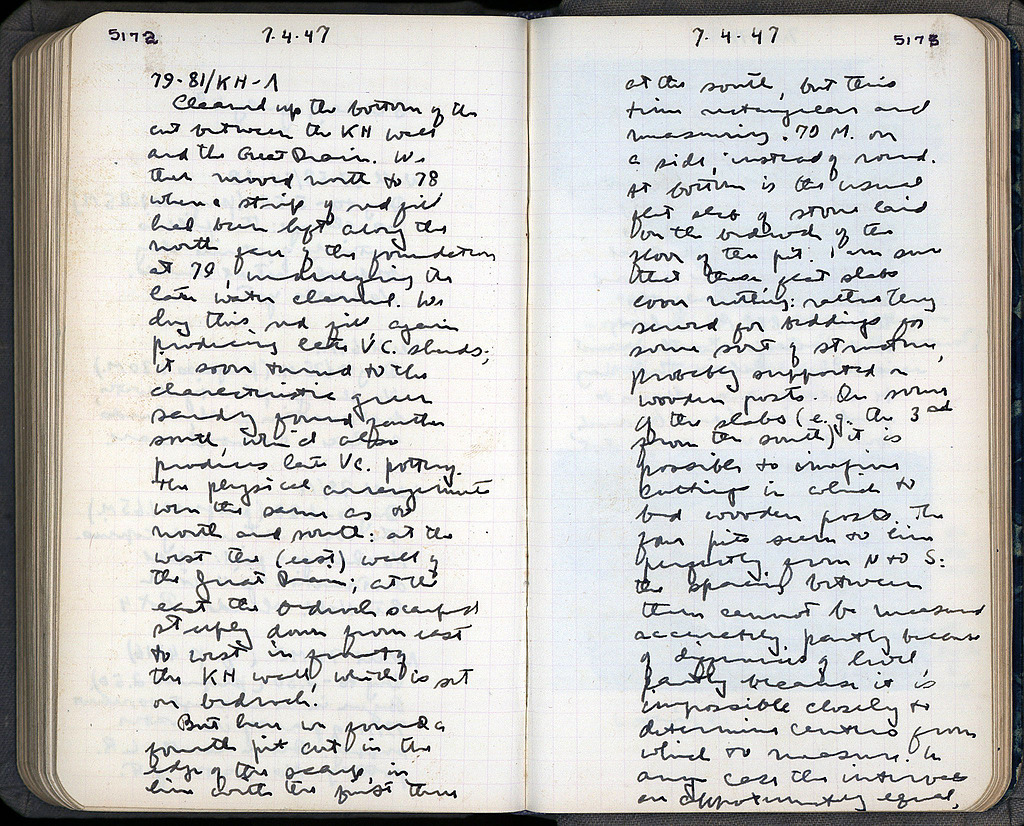 5172 7.4.47
79-81/KH-Λ
Cleaned up the bottom of the
cut between the KH wall
and the Great Drain. We
then moved north to 78
where a strip of red fill
had been left along the
north face of the foundation
at 79, underlying the
late water channel. We
dug this red fill, again
producing late V.C. sherds;
it soon turned to the
characteristic green
sandy found further
south which also
produces late V.C. pottery.
The physical arrangements
were the same as to
north and south: at the
west the (east) wall of
the Great Drain; at the
east the bedrock scarped
steeply down from east
to west in front of
the KH wall, which is set
on bedrock.
But here we found a
fourth pit cut in the
edge of the scarp, in
line with the first three
7.4.47 5173
at the south, but this
time rectangular and
measuring .70 M. on
a side, instead of round.
At bottom is the usual
flat slab of stone laid
on the bedrock of the
floor of the pit. I am sure
that these flat slabs
cover nothing: rather they
served for beddings for
some sort of structure,
probably supported on
wooden posts. On some
of the slabs (e.g. the 3rd
from the south) it is
possible to imagine
cuttings in which to
bed wooden posts. The
four pits seem to line
perfectly from N to S:
the spacing between
them cannot be measured
accurately partly because
of differences of level,
partly because it is
impossible closely to
determine centers from
which to measure. In
any case the intervals
are approximately equal,